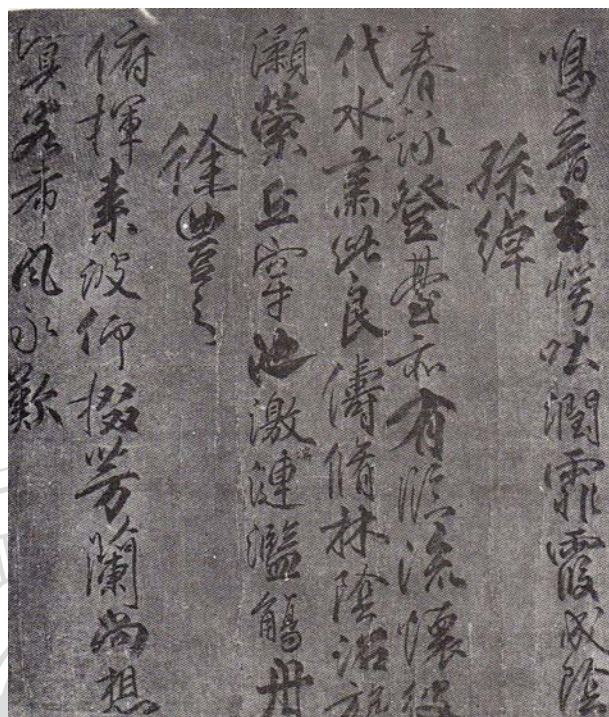 鳴音玄崿吐潤霏霞成陰
孫綽
春詠登臺亦有臨流懷彼
代水肅此良儔脩林陰沼旋
瀨縈丘穿池激湍漣濫觴舟
徐豐之
俯揮素波仰掇芳蘭尚想
客希風永歎